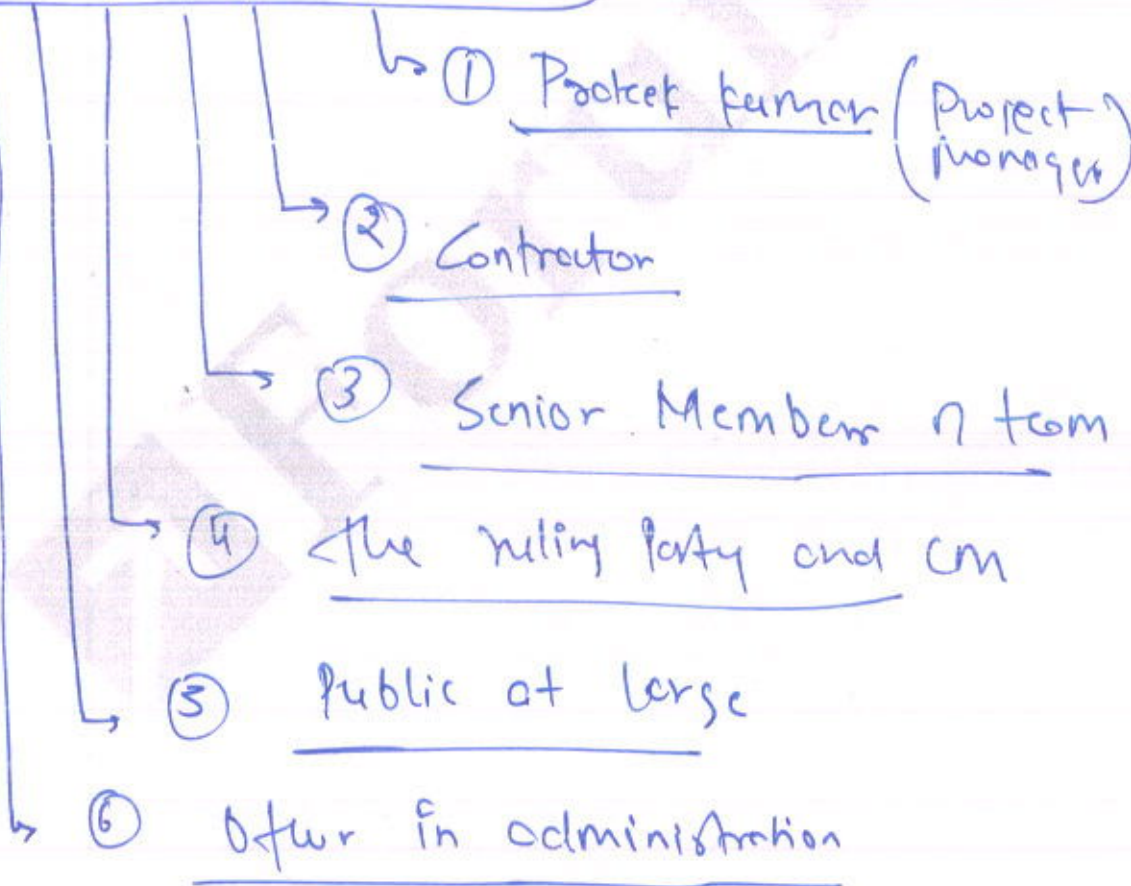 ① Prateek kumar (Project manager)
② Contractor
③ Senior Members of team
④ The ruling Party and CM
⑤ Public at large
⑥ Other in administration